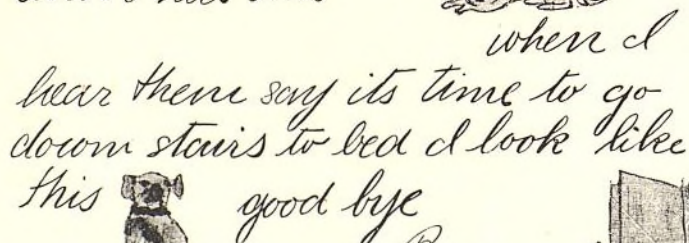 when I
hear them say its time to go
down stairs to bed I look like
this good bye